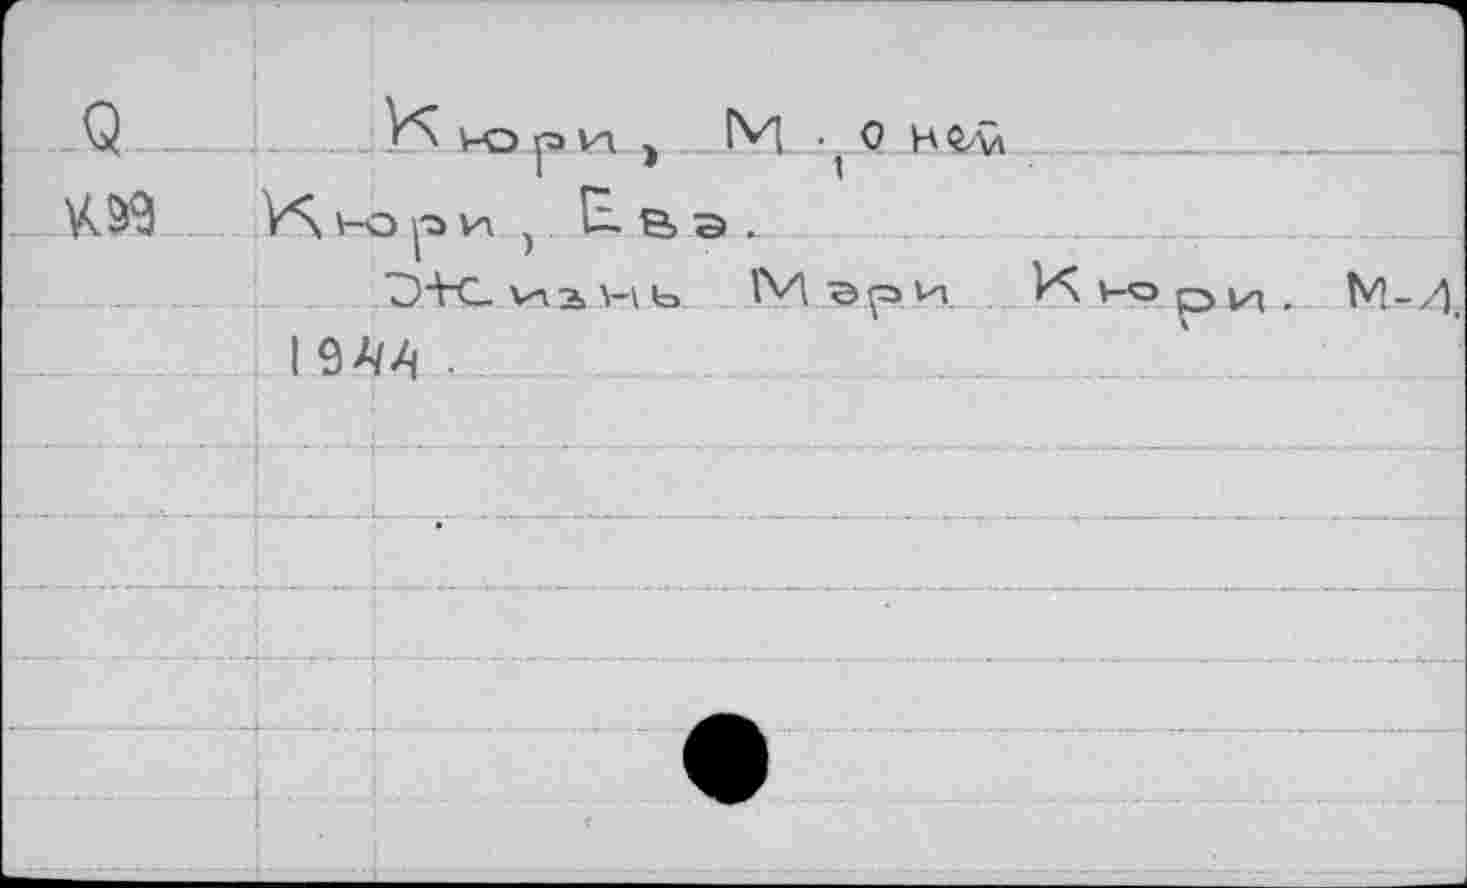 Q Кюри, М., о ней
К99 Кюри, Ева.
Жизнь Мэри Кюри. М-Л.
1944.